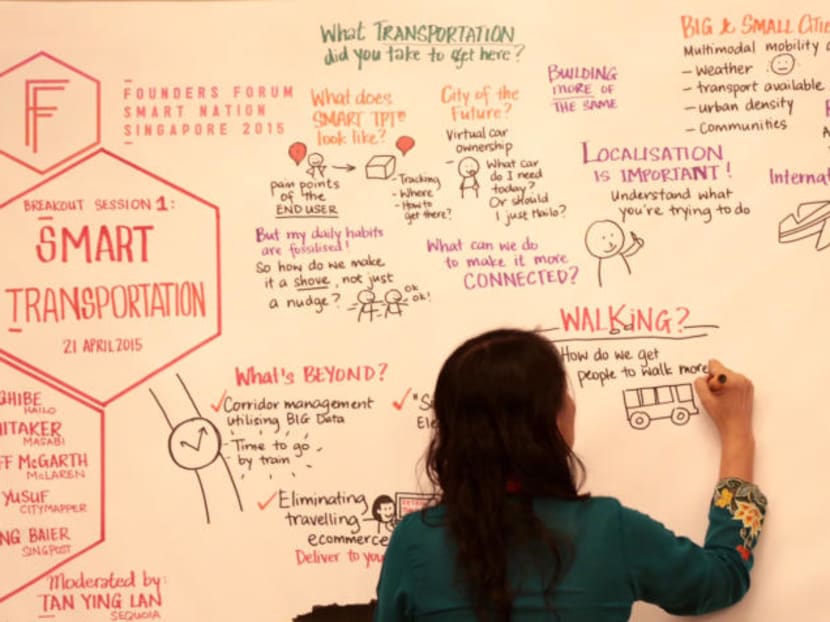 FOUNDERS FORUM
SMART NATION
SINGAPORE 2015
BREAKOUT SESSION 1:
SMART
TRANSPORTATION
21 APRIL 2015
GHIBE
HAILO
ITAKER
MASABI
FF McGARTH
McLAREN
YUSUF
CITYMAPPER
NG BAIER
SINGPOST
Moderated by:
TAN YING LAN
SEQUOIA
What TRANSPORTATION
did you take to get here?
What does
SMART TPT
look like?
pain points
of the
END USER
- Tracking
- Where
- How to
get there?
City of the
Future?
Virtual car
ownership
What car
do I need
today?
Or should
I just Hailo?
BUILDING
MORE OF
THE SAME
BIG & SMALL CITIE
Multimodal mobility
- weather
- transport available
- urban density
- Communities
LOCALISATION
IS IMPORTANT!
Understand what
you're trying to do
Internat
But my daily habits
are fossilised!
So how do we make
it a shove, not just
a nudge?
ok
ok!
What can we do
to make it more
CONNECTED?
What's BEYOND?
Corridor management
utilising BIG Data
- Time to go
by train
Eliminating
travelling
ecommerce
Deliver to you
WALKING?
How do we get
people to walk more